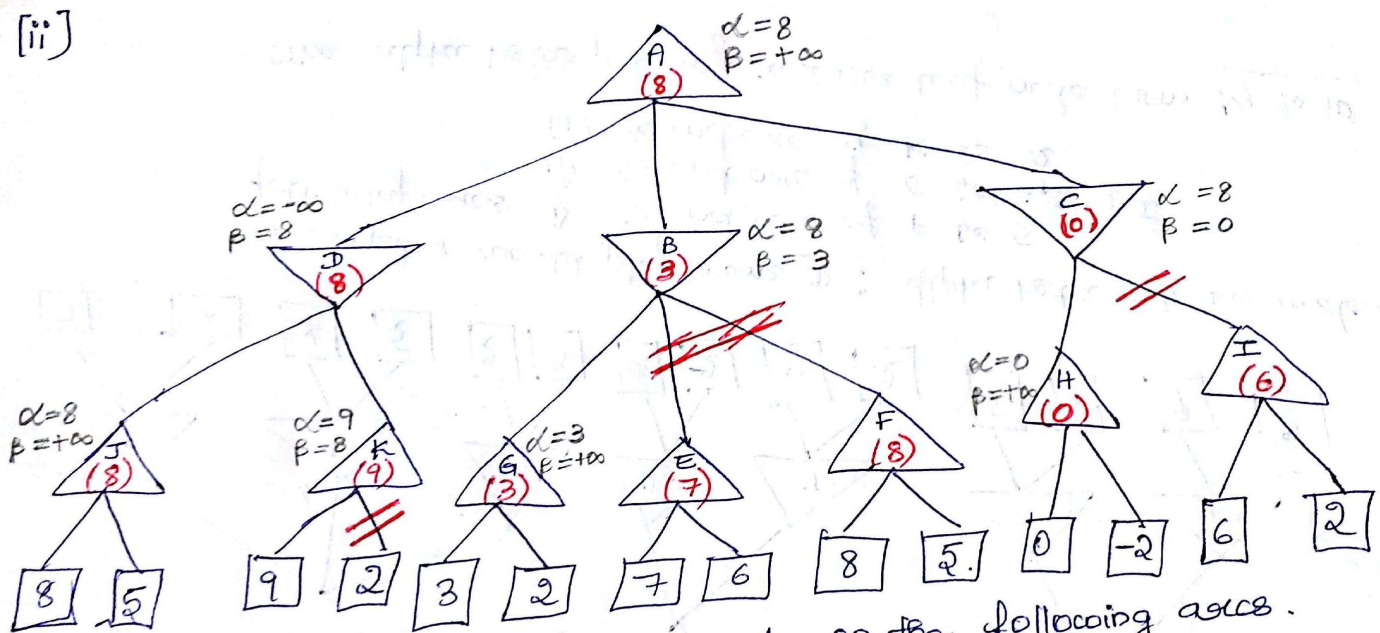 [ii]
α=8
β=+∞
A
(8)
α=-∞
β=8
D
(8)
B
(3)
α=8
β=3
C
(0)
α=8
β=0
α=8
β=+∞
J
(8)
α=9
β=8
K
(9)
G
(3)
α=3
β=+∞
E
(7)
F
(8)
α=0
β=+∞
H
(0)
I
(6)
8 5 9 2 3 2 7 6 8 5. 0 -2 6 2
following arcs.